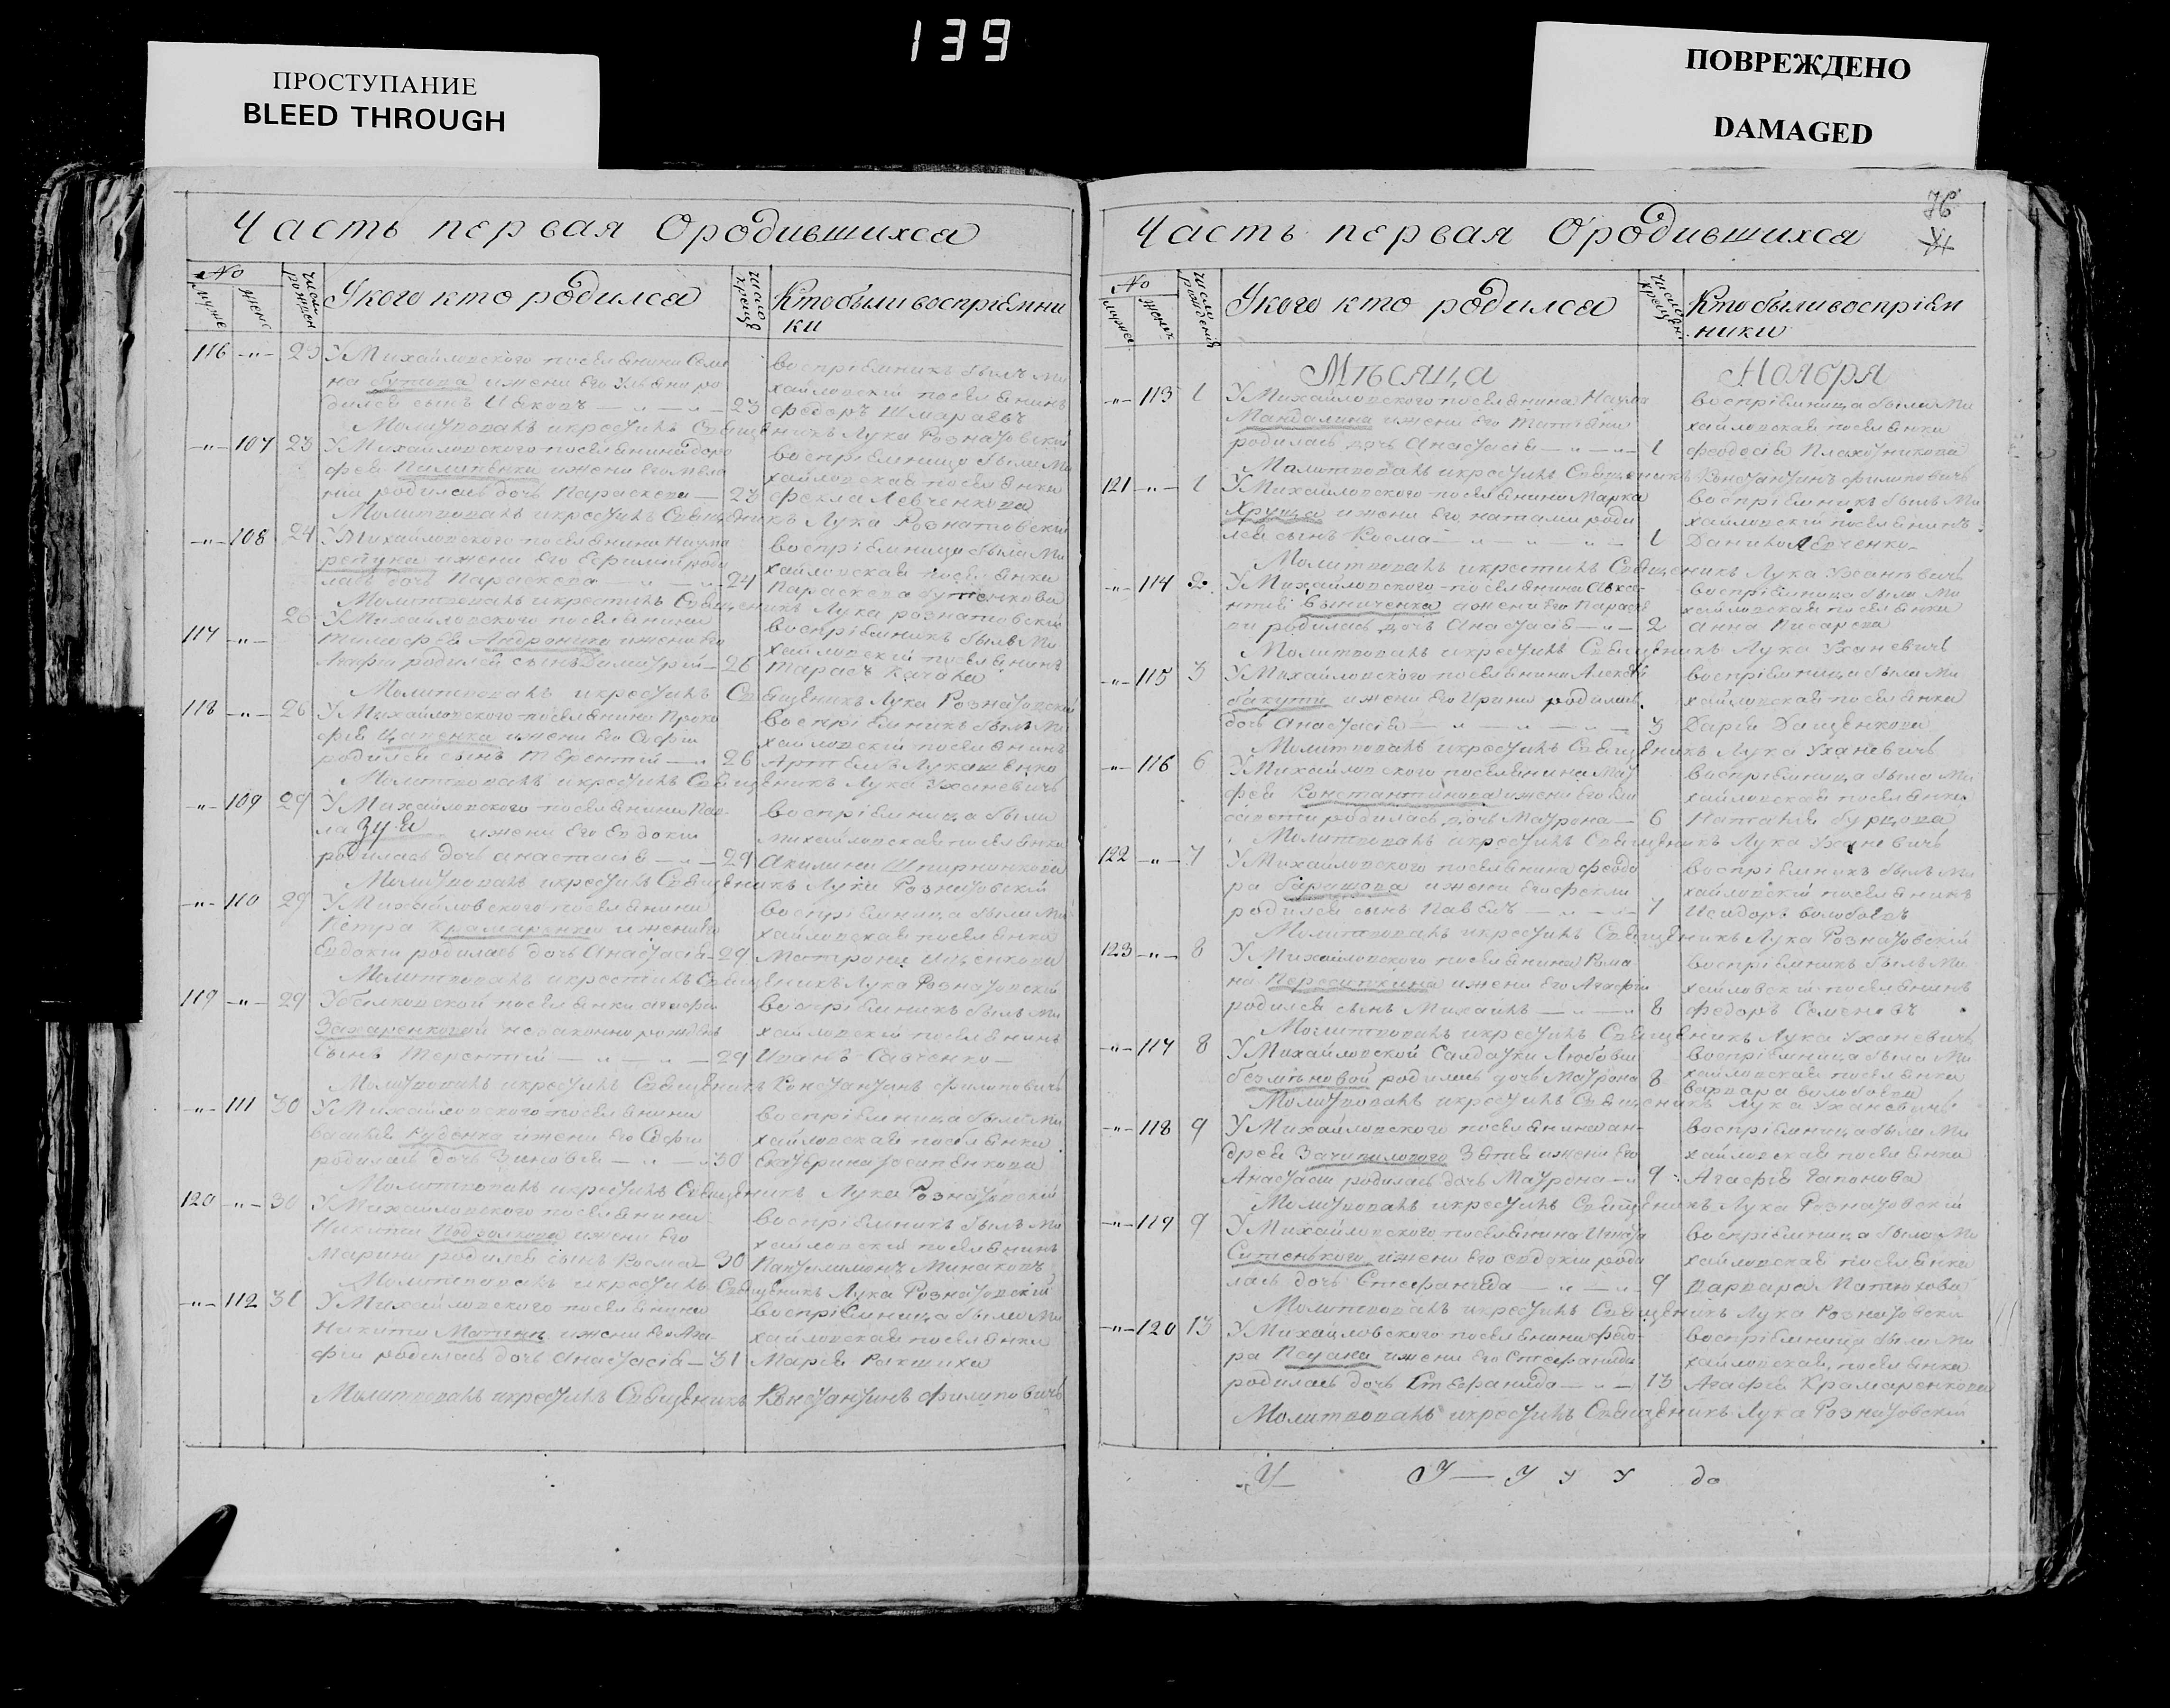 139
ПРОСТУПАНИЕ
BLEED THROUGH
ПОВРЕЖДЕНО
DAMAGED
Часть первая Ородившихса
№
муже
жена
число рожден
Укого кто родился
число крещ
Кто были воспріемни
ки
116 23 У Михайловского поселянина Семе
на Бутова ижени его
дился сынъ Иаковъ 23
воспріемникъ былъ Ми
хайловскій поселянинъ
федоръ Шмараевъ
Молитвовалъ икрестилъ Священникъ Лука Рознатовскій
107 23 У Михайловского поселянина
фея Пилипенка ижени его
родилась дочь Параскева 23
воспріемница была Ми
хайловская поселянка
фекла Левченкова
Молитвовалъ икрестилъ Священникъ Лука Рознатовскій
108 24 У Михайловского поселянина Наума
репуна ижени его Ефиміи роди
лась дочь Параскева 24
воспріемница была Ми
хайловская поселянка
Параскева Бутенкова
Молитвовалъ икрестилъ Священникъ Лука рознатовскій
117 26 У Михайловского поселянина
Тимофея ижени его
Агафіи родился сынъ Димитрій 26
воспріемникъ былъ Ми
хайловскій поселянинъ
Тарасъ
Молитвовалъ икрестилъ Священникъ Лука Рознатовскій
118 26 У Михайловского поселянина Проко
фія Цапенка ижени его Софіи
родился сынъ Терентій 26
воспріемникъ былъ Ми
хайловскій поселянинъ
Артемъ Лукашенко
Молитвовалъ икрестилъ Священникъ Лука Уханевичъ
109 29 У Михайловского поселянина Пав
ла Зуя ижени его Евдокіи
родилась дочь анастасія 29
воспріемница была
Михайловская поселянка
Акилина
Молитвовалъ икрестилъ Священникъ Лука Рознатовскій
110 29 У Михайловского поселянина
Петра Крамаренка ижени его
Евдокіи родилась дочь Анастасія 29
воспріемница была Ми
хайловская поселянка
Матрона
Молитвовалъ икрестилъ Священникъ Лука Рознатовскій
119 29 поселянки агафіи
Захаренковой незаконно рожденъ
Сынъ Терентій 29
воспріемникъ былъ Ми
хайловскій поселянинъ
Иванъ Савченко
Молитвовалъ икрестилъ Священникъ Константинъ филиповичъ
111 30 У Михайловского поселянина
василія Руденка ижени его Софіи
родилась дочь Зиновія 30
воспріемница была Ми
хайловская поселянка
Екатерина
Молитвовалъ икрестилъ Священникъ Лука Рознатовскій
120 30 У Михайловского поселянина
Никиты ижени его
Марины родился сынъ Косма 30
воспріемникъ былъ Ми
хайловскій поселянинъ
Пантелимонъ Минаковъ
Молитвовалъ икрестилъ Священникъ Лука Рознатовскій
112 31 У Михайловского поселянина
Никиты ижени его Ага
фіи родилась дочь Анастасія 31
воспріемница была Ми
хайловская поселянка
Марія Ракшиха
Молитвовалъ икрестилъ Священникъ Константинъ филиповичъ
76
Часть первая Ородившихса
№
муже
жена
число рожденія
Укого кто родился
число крещен
Кто были воспріем
ники
Мѣсяца Ноября
113 1 У Михайловского поселянина Наума
Мандалина ижени его Татіяны
родилась дочь Анастасія 1
воспріемница была Ми
хайловская поселянка
феодосія Плахотникова
Молитвовалъ икрестилъ Священникъ Константинъ филиповичъ
121 1 У Михайловского поселянина Марка
Хруща ижени его наталіи роди
лся сынъ Косма 1
воспріемникъ былъ Ми
хайловскій поселянинъ
Данило Левченко
Молитвовалъ икрестилъ Священникъ Лука Уханевичъ
114 2 У Михайловского поселянина
ижени его Парас
родилась дочь Анастасія 2
воспріемница была Ми
хайловская поселянка
анна Писарева
Молитвовалъ икрестилъ Священникъ Лука Уханевичъ
115 3 У Михайловского поселянина Алексѣя
бакути ижени его Ирины родилась
дочь Анастасія 3
воспріемница была Ми
хайловская поселянка
Дарія Дащенкова
Молитвовалъ икрестилъ Священникъ Лука Уханевичъ
116 6 У Михайловского поселянина Мат
фея Константинова ижени его
родилась дочь Матрона 6
воспріемница была Ми
хайловская поселянка
Наталія бурцова
Молитвовалъ икрестилъ Священникъ Лука Уханевичъ
122 7 У Михайловского поселянина феодо
ра ижени его феклы
родился сынъ Павелъ 7
воспріемникъ былъ Ми
хайловскій поселянинъ
Исидоръ
Молитвовалъ икрестилъ Священникъ Лука Рознатовскій
123 8 У Михайловского поселянина Рома
на Пересипкина ижени его Агафіи
родился сынъ Михаилъ 8
воспріемникъ былъ Ми
хайловскій поселянинъ
федоръ Семеновъ
Молитвовалъ икрестилъ Священникъ Лука Уханевичъ
117 8 У Михайловской Салдатки Любови
родилась дочь Матрона 8
воспріемница была Ми
хайловская поселянка
варвара
Молитвовалъ икрестилъ Священникъ Лука Уханевичъ
118 9 У Михайловского поселянина ан
дрея Зачипилового Зятя ижени его
Анастасіи родилась дочь Матрона 9
воспріемница была Ми
хайловская поселянка
Агафія Гапонова
Молитвовалъ икрестилъ Священникъ Лука Рознатовскій
119 9 У Михайловского поселянина Игната
Ситенького ижени его евдокіи роди
лась дочь Стефанида 9
воспріемница была Ми
хайловская поселянка
варвара Матюхова
Молитвовалъ икрестилъ Священникъ Лука Рознатовскій
120 13 У Михайловского поселянина федо
ра ижени его Стефаниды
родилась дочь Стефанида 13
воспріемница была Ми
хайловская поселянка
Агафія Крамаренкова
Молитвовалъ икрестилъ Священникъ Лука Рознатовскій
У У У У У до